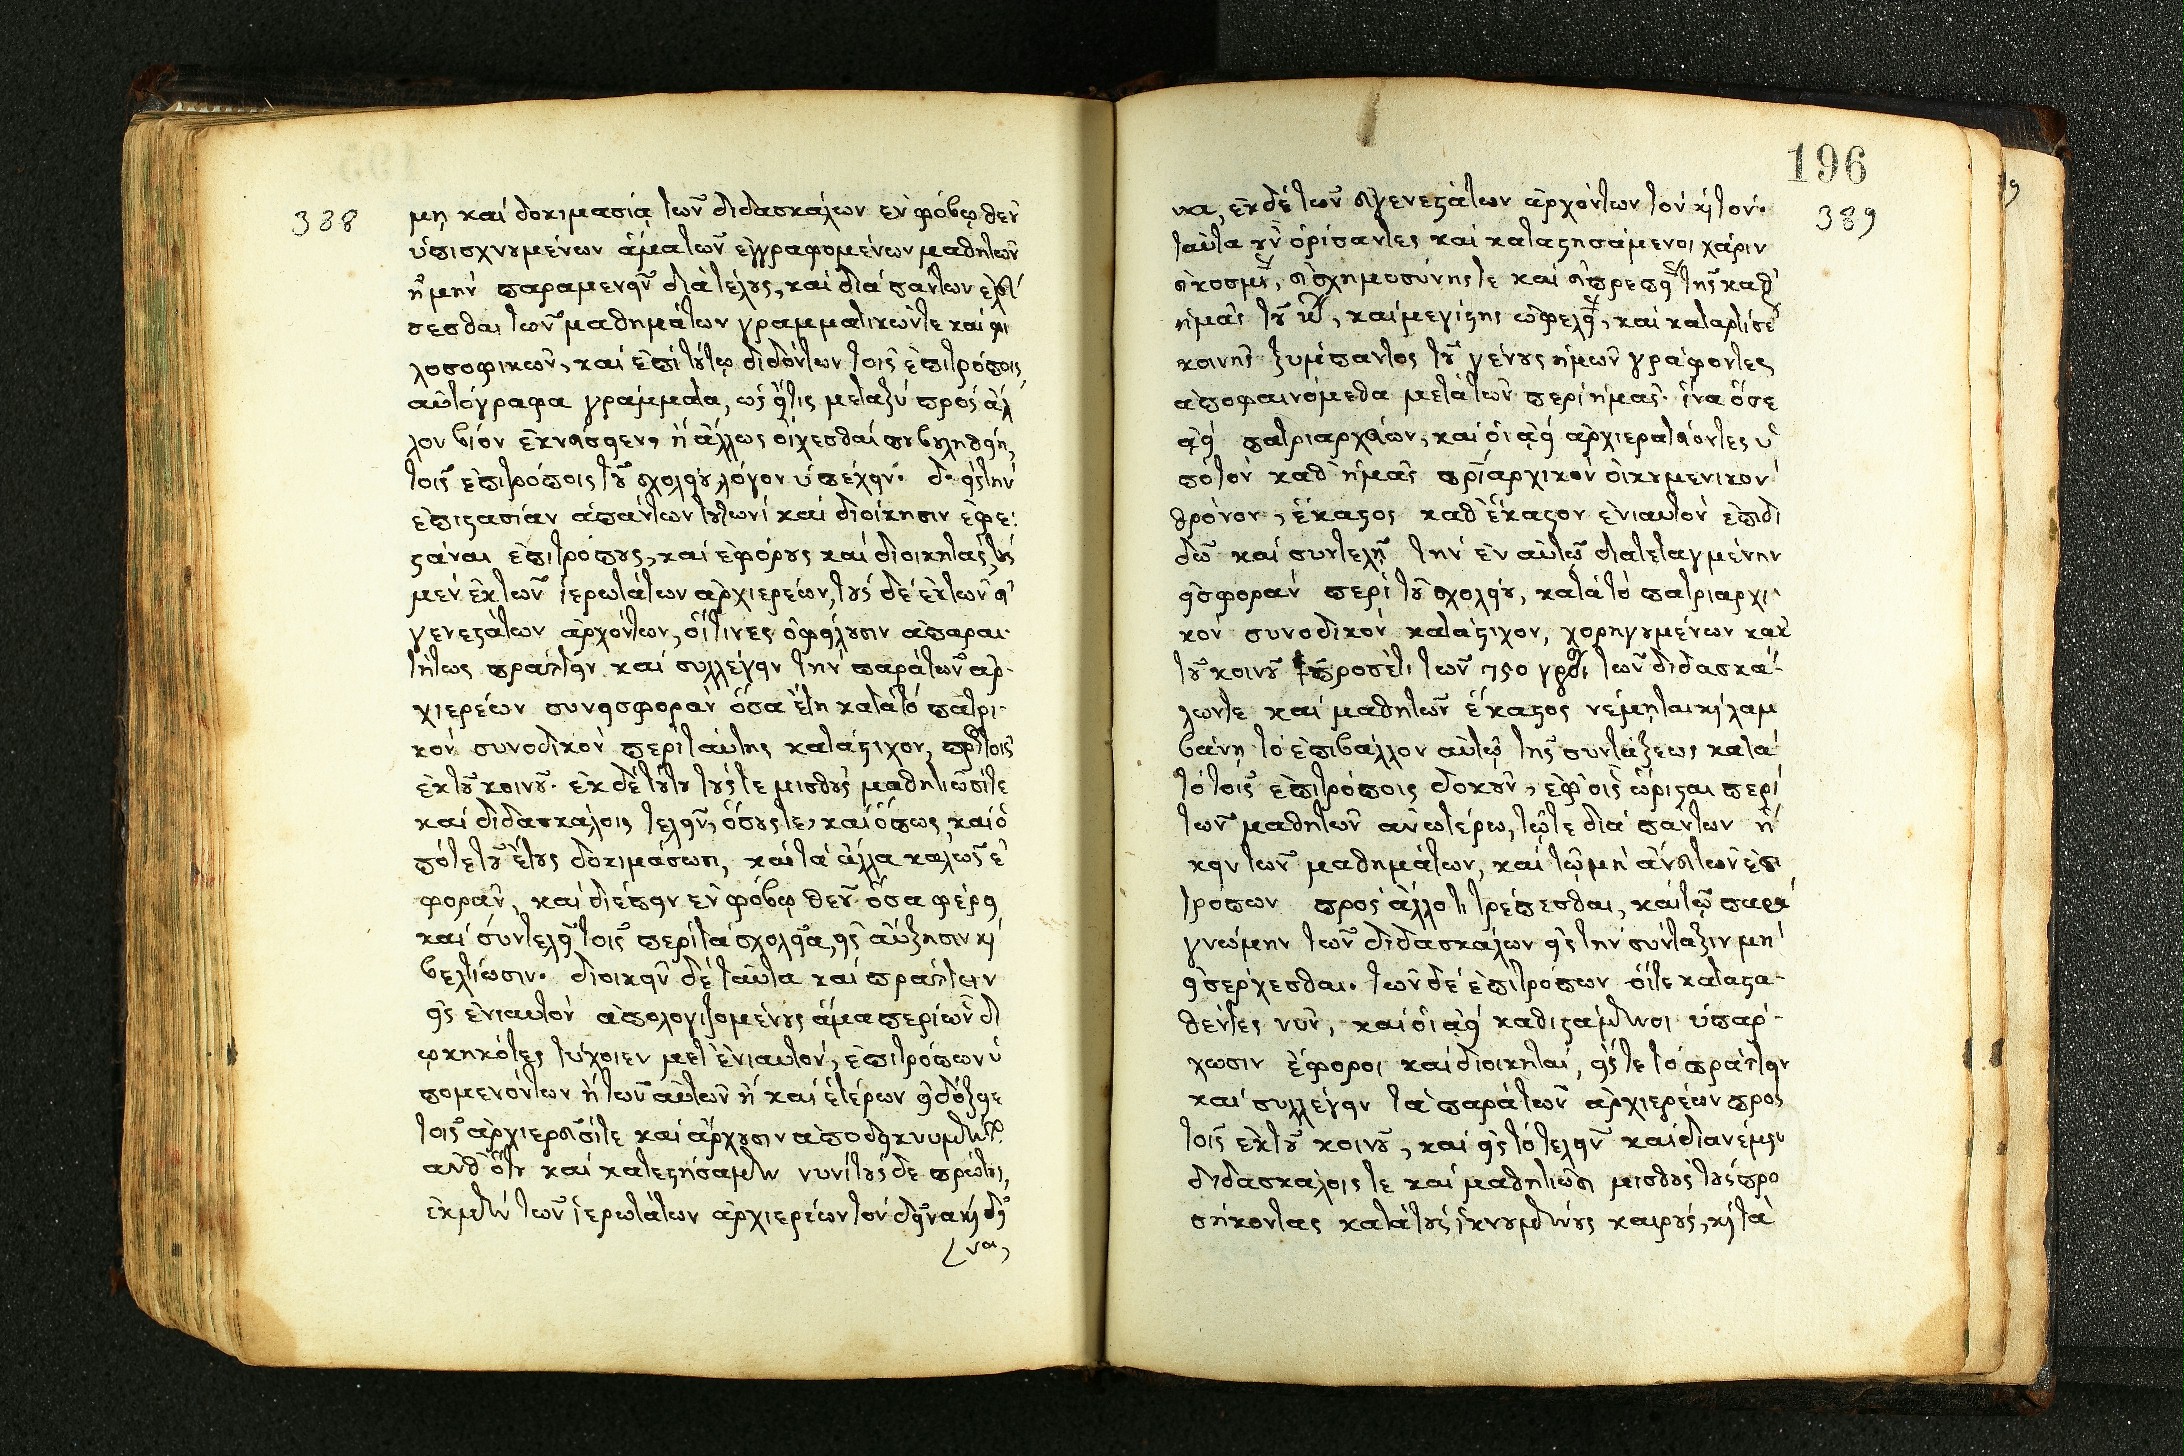 338
μῃ καὶ δοκιμασίᾳ τῶν διδασκάλων ἐν φόβῳ θεοῦ
ὑπισχνουμένων ἅμα τῶν ἐγγραφομένων μαθητῶν
ἦ μὴν παραμενεῖν διὰ τέλους, καὶ διὰ πάντων
σεσθαι τῶν μαθημάτων γραμματικῶν τε καὶ φι
λοσοφικῶν, καὶ ἐπὶ τούτῳ διδόντων τοῖς ἐπιτρόποις
αὐτόγραφα γράμματα, ὡς εἴ τις μεταξὺ πρὸς ἄλ
λον βίον ἐκνεύσειεν, ἢ ἄλλως οἴχεσθαι βουληθείη,
τοῖς ἐπιτρόποις τοῦ σχολείου λόγον ὑπέχειν. δ. εἰς τὴν
ἐπιστασίαν ἁπάντων τουτωνὶ καὶ διοίκησιν ἐφε
στάναι ἐπιτρόπους, καὶ ἐφόρους καὶ διοικητάς, τοὺς
μὲν ἐκ τῶν ἱερωτάτων ἀρχιερέων, τοὺς δὲ ἐκ τῶν εὐ
γενεστάτων ἀρχόντων, οἵτινες ὀφείλουσιν ἀπαραι
τήτως πράττειν καὶ συλλέγειν τὴν παρὰ τῶν ἀρ
χιερέων συνεισφορὰν ὅσα ἔτη κατὰ τὸ πατρι
κὸν συνοδικὸν περὶ ταύτης κατάστιχον, τοῖς
ἐκ τοῦ κοινοῦ. ἐκ δὲ τούτου τούς τε μισθοὺς μαθητιῶσί τε
καὶ διδασκάλοις τελεῖν, ὅσους τε, καὶ ὅπως, καὶ ὁ
πότε τοῦ ἔτους δοκιμάσωσι, καὶ τὰ ἄλλα καλῶς ἐ
φορᾶν, καὶ διέπειν ἐν φόβῳ θεοῦ ὅσα φέρει
καὶ συντελεῖ τοῖς περὶ τὰ σχολεῖα, εἰς αὔξησιν κ̀
βελτίωσιν. διοικεῖν δὲ ταῦτα καὶ πράττειν
εἰς ἐνιαυτὸν ἀπολογιζομένους ἅμα περὶ ὧν δι
ῳκηκότες τύχοιεν μετ' ἐνιαυτόν, ἐπιτρόπων ὑ
πομενόντων ἢ τῶν αὐτῶν ἢ καὶ ἑτέρων εἰ δόξειε
τοῖς ἀρχιερεῦσί τε καὶ ἄρχουσιν ἀποδεικνυμένων
ἀνθ' ὅτου καὶ κατεστήσαμεν νυνὶ τούσδε πρώτους,
ἐκ μὲν τῶν ἱερωτάτων ἀρχιερέων τὸν δεῖνα κ̀ δεῖ
να,
196
389
να, ἐκ δὲ τῶν εὐγενεστάτων ἀρχόντων τὸν κ̀ τόν.
ταῦτα οὖν ὁρίσαντες καὶ καταστησάμενοι χάριν
εὐκοσμίας, εὐσχημοσύνης τε καὶ εὐπρεπείας τῆς καθ'
ἡμᾶς τοῦ , καὶ μεγίστης ὠφελείας, καὶ καταρτίσεως
κοινῆς ξυμπαντος τοῦ γένους ἡμῶν γράφοντες
ἀποφαινόμεθα μετὰ τῶν περὶ ἡμᾶς· ἵνα ὅ τε
ἀεὶ πατριαρχεύων, καὶ οἱ ἀεὶ ἀρχιερατεύοντες ὑ
πὸ τὸν καθ' ἡμᾶς πριαρχικὸν οἰκουμενικὸν
θρόνον, ἕκαστος καθ' ἕκαστον ἐνιαυτὸν ἐπιδι
δῷ καὶ συντελῇ τὴν ἐν αὐτῷ διατεταγμένην
εἰσφορὰν περὶ τοῦ σχολείου, κατὰ τὸ πατριαρχι
κὸν συνοδικὸν κατάστιχον, χορηγουμένων κἀκ
τοῦ κοινοῦ προσέτι τῶν 750 γροσι τῶν διδασκά
λων τε καὶ μαθητῶν ἕκαστος νέμηται κ̀ λαμ
βάνῃ τὸ ἐπιβάλλον αὐτῷ τῆς συντάξεως κατὰ
τὸ τοῖς ἐπιτρόποις δοκοῦν, ἐφ' οἷς ὥρισται περὶ
τῶν μαθητῶν ἀνωτέρω, τῷ τε διὰ πάντων ἥ
κειν τῶν μαθημάτων, καὶ τῷ μὴ ἄνευ τῶν ἐπι
τρόπων πρὸς ἄλλό τι τρέπεσθαι, καὶ τῷ παρὰ
γνώμην τῶν διδασκάλων εἰς τὴν σύνταξιν μὴ
εἰσέρχεσθαι. τῶν δὲ ἐπιτρόπων οἵ τε κατασta
θέντες νῦν, καὶ οἱ ἀεὶ καθιστάμενοι ὑπάρ
χωσιν ἔφοροι καὶ διοικηταί, εἴς τε τὸ πράττειν
καὶ συλλέγειν τὰ παρὰ τῶν ἀρχιερέων πρὸς
τοῖς ἐκ τοῦ κοινοῦ, καὶ εἰς τὸ τελεῖν καὶ διανέμειν
διδασκάλοις τε καὶ μαθητιῶσι μισθοὺς τοὺς προ
σήκοντας κατὰ τοὺς ἱκνουμένους καιρούς, κ̀ τὰ